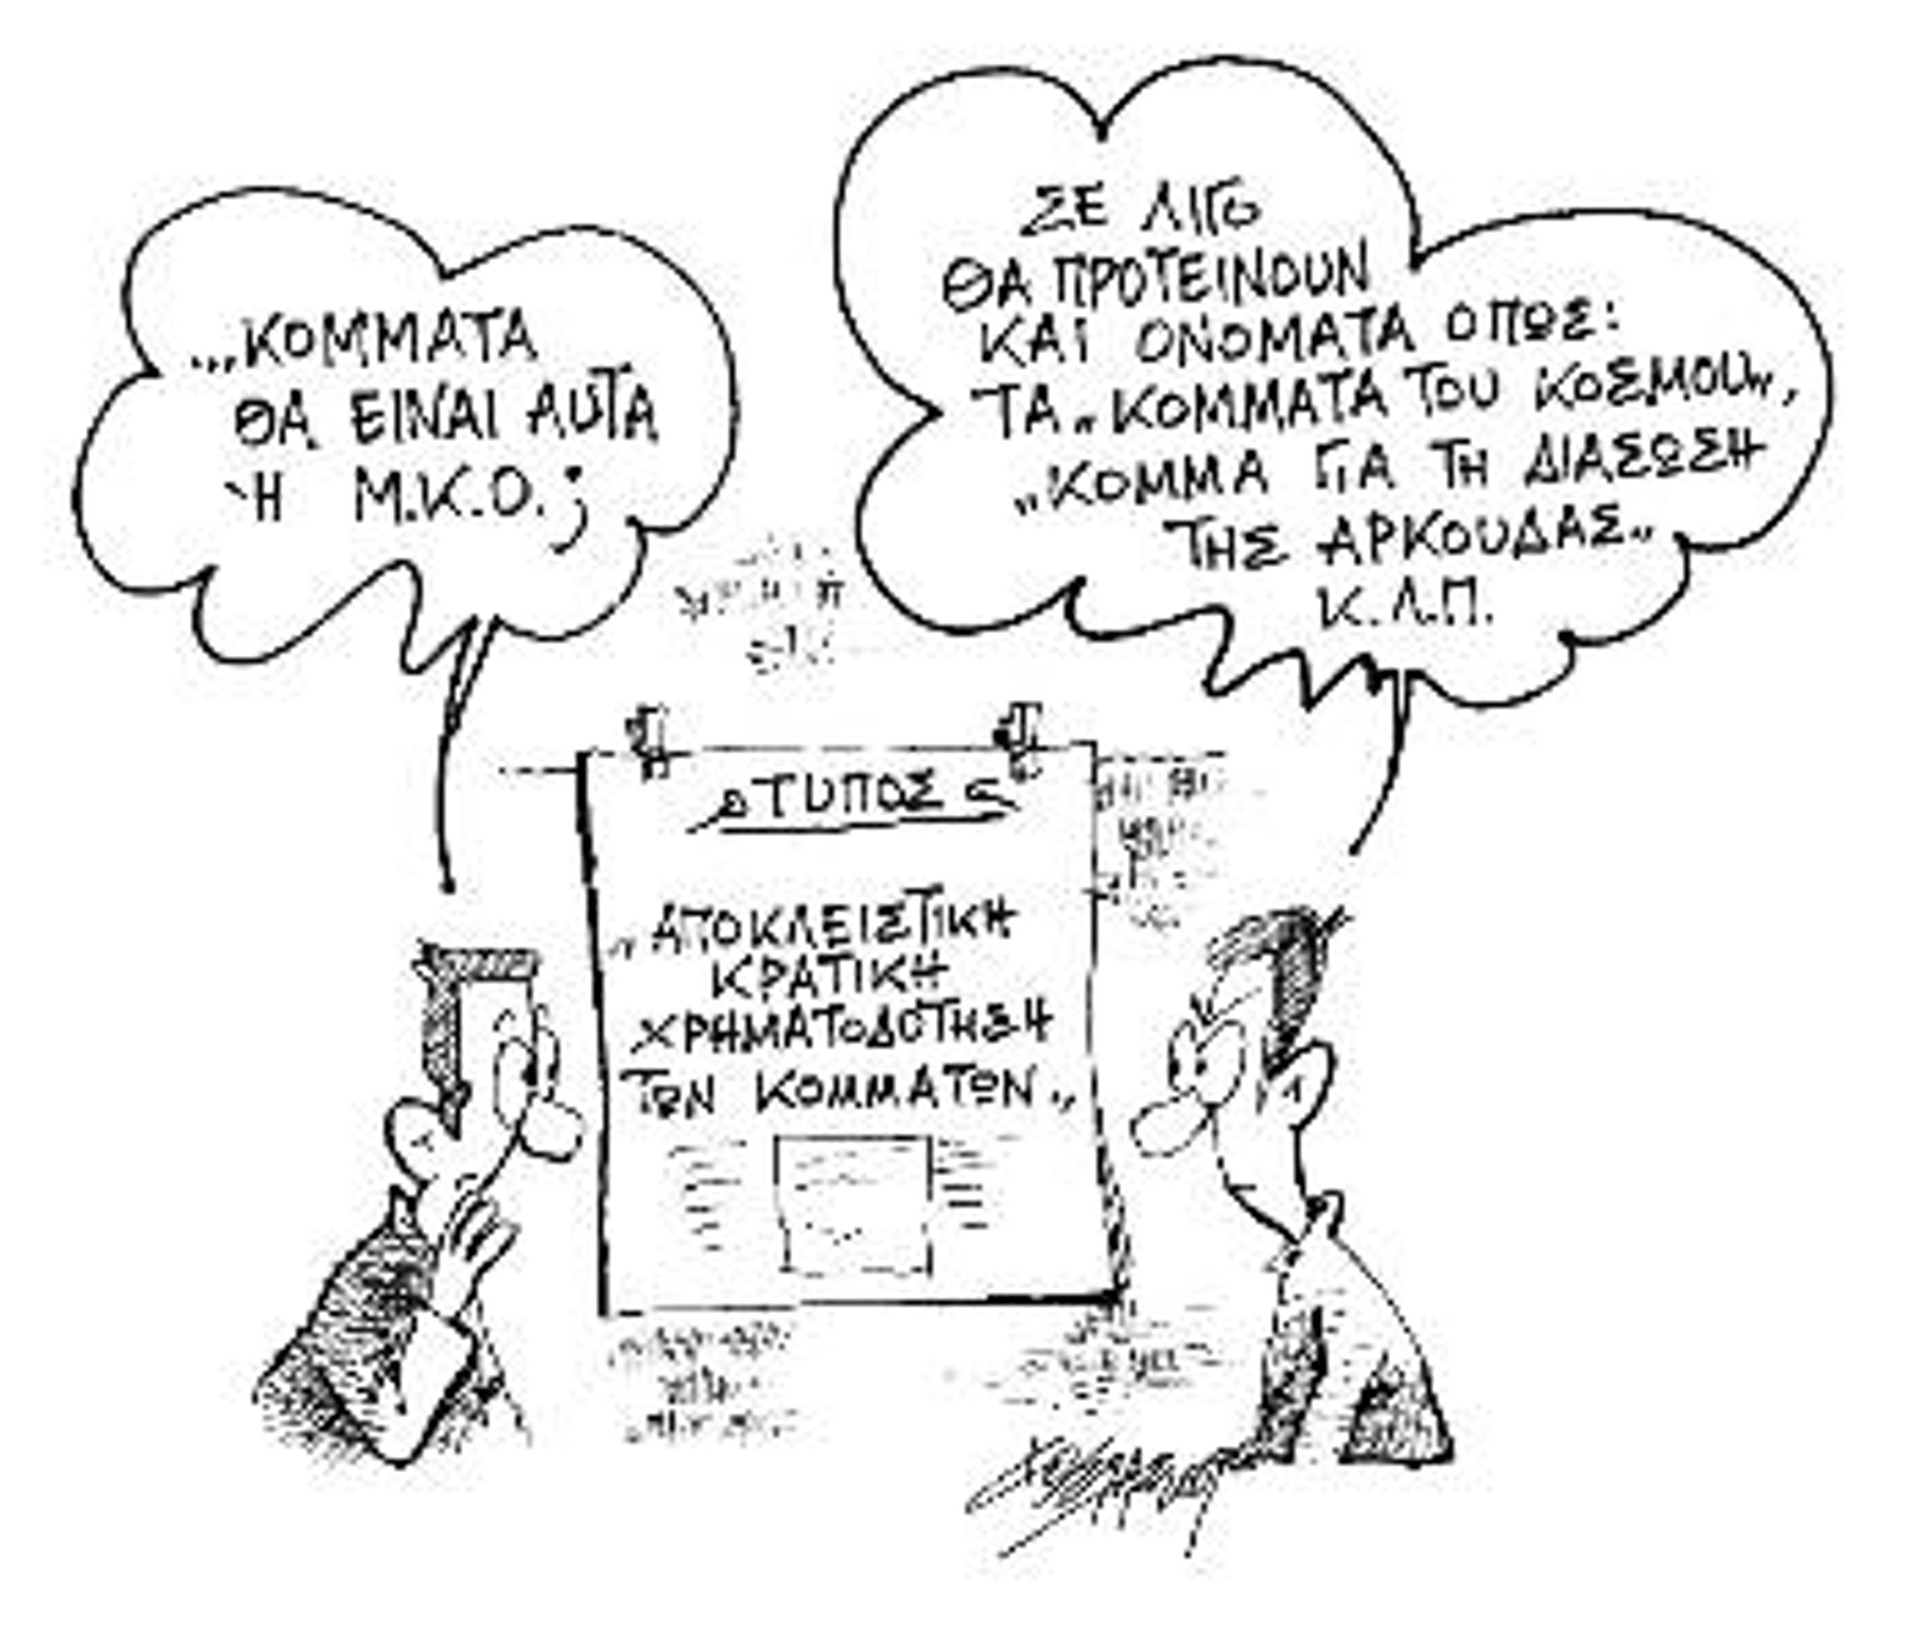 ...ΚΟΜΜΑΤΑ
ΘΑ ΕΙΝΑΙ ΑΥΤΑ
Ή Μ.Κ.Ο.;
ΣΕ ΛΙΓΟ
ΘΑ ΠΡΟΤΕΙΝΟΥΝ
ΚΑΙ ΟΝΟΜΑΤΑ ΟΠΩΣ:
ΤΑ „ΚΟΜΜΑΤΑ ΤΟΥ ΚΟΣΜΟΥ„,
„ΚΟΜΜΑ ΓΙΑ ΤΗ ΔΙΑΣΩΣΗ
ΤΗΣ ΑΡΚΟΥΔΑΣ„
Κ.Λ.Π.
ΤΥΠΟΣ
„ΑΠΟΚΛΕΙΣΤΙΚΗ
ΚΡΑΤΙΚΗ
ΧΡΗΜΑΤΟΔΟΤΗΣΗ
ΤΩΝ ΚΟΜΜΑΤΩΝ„